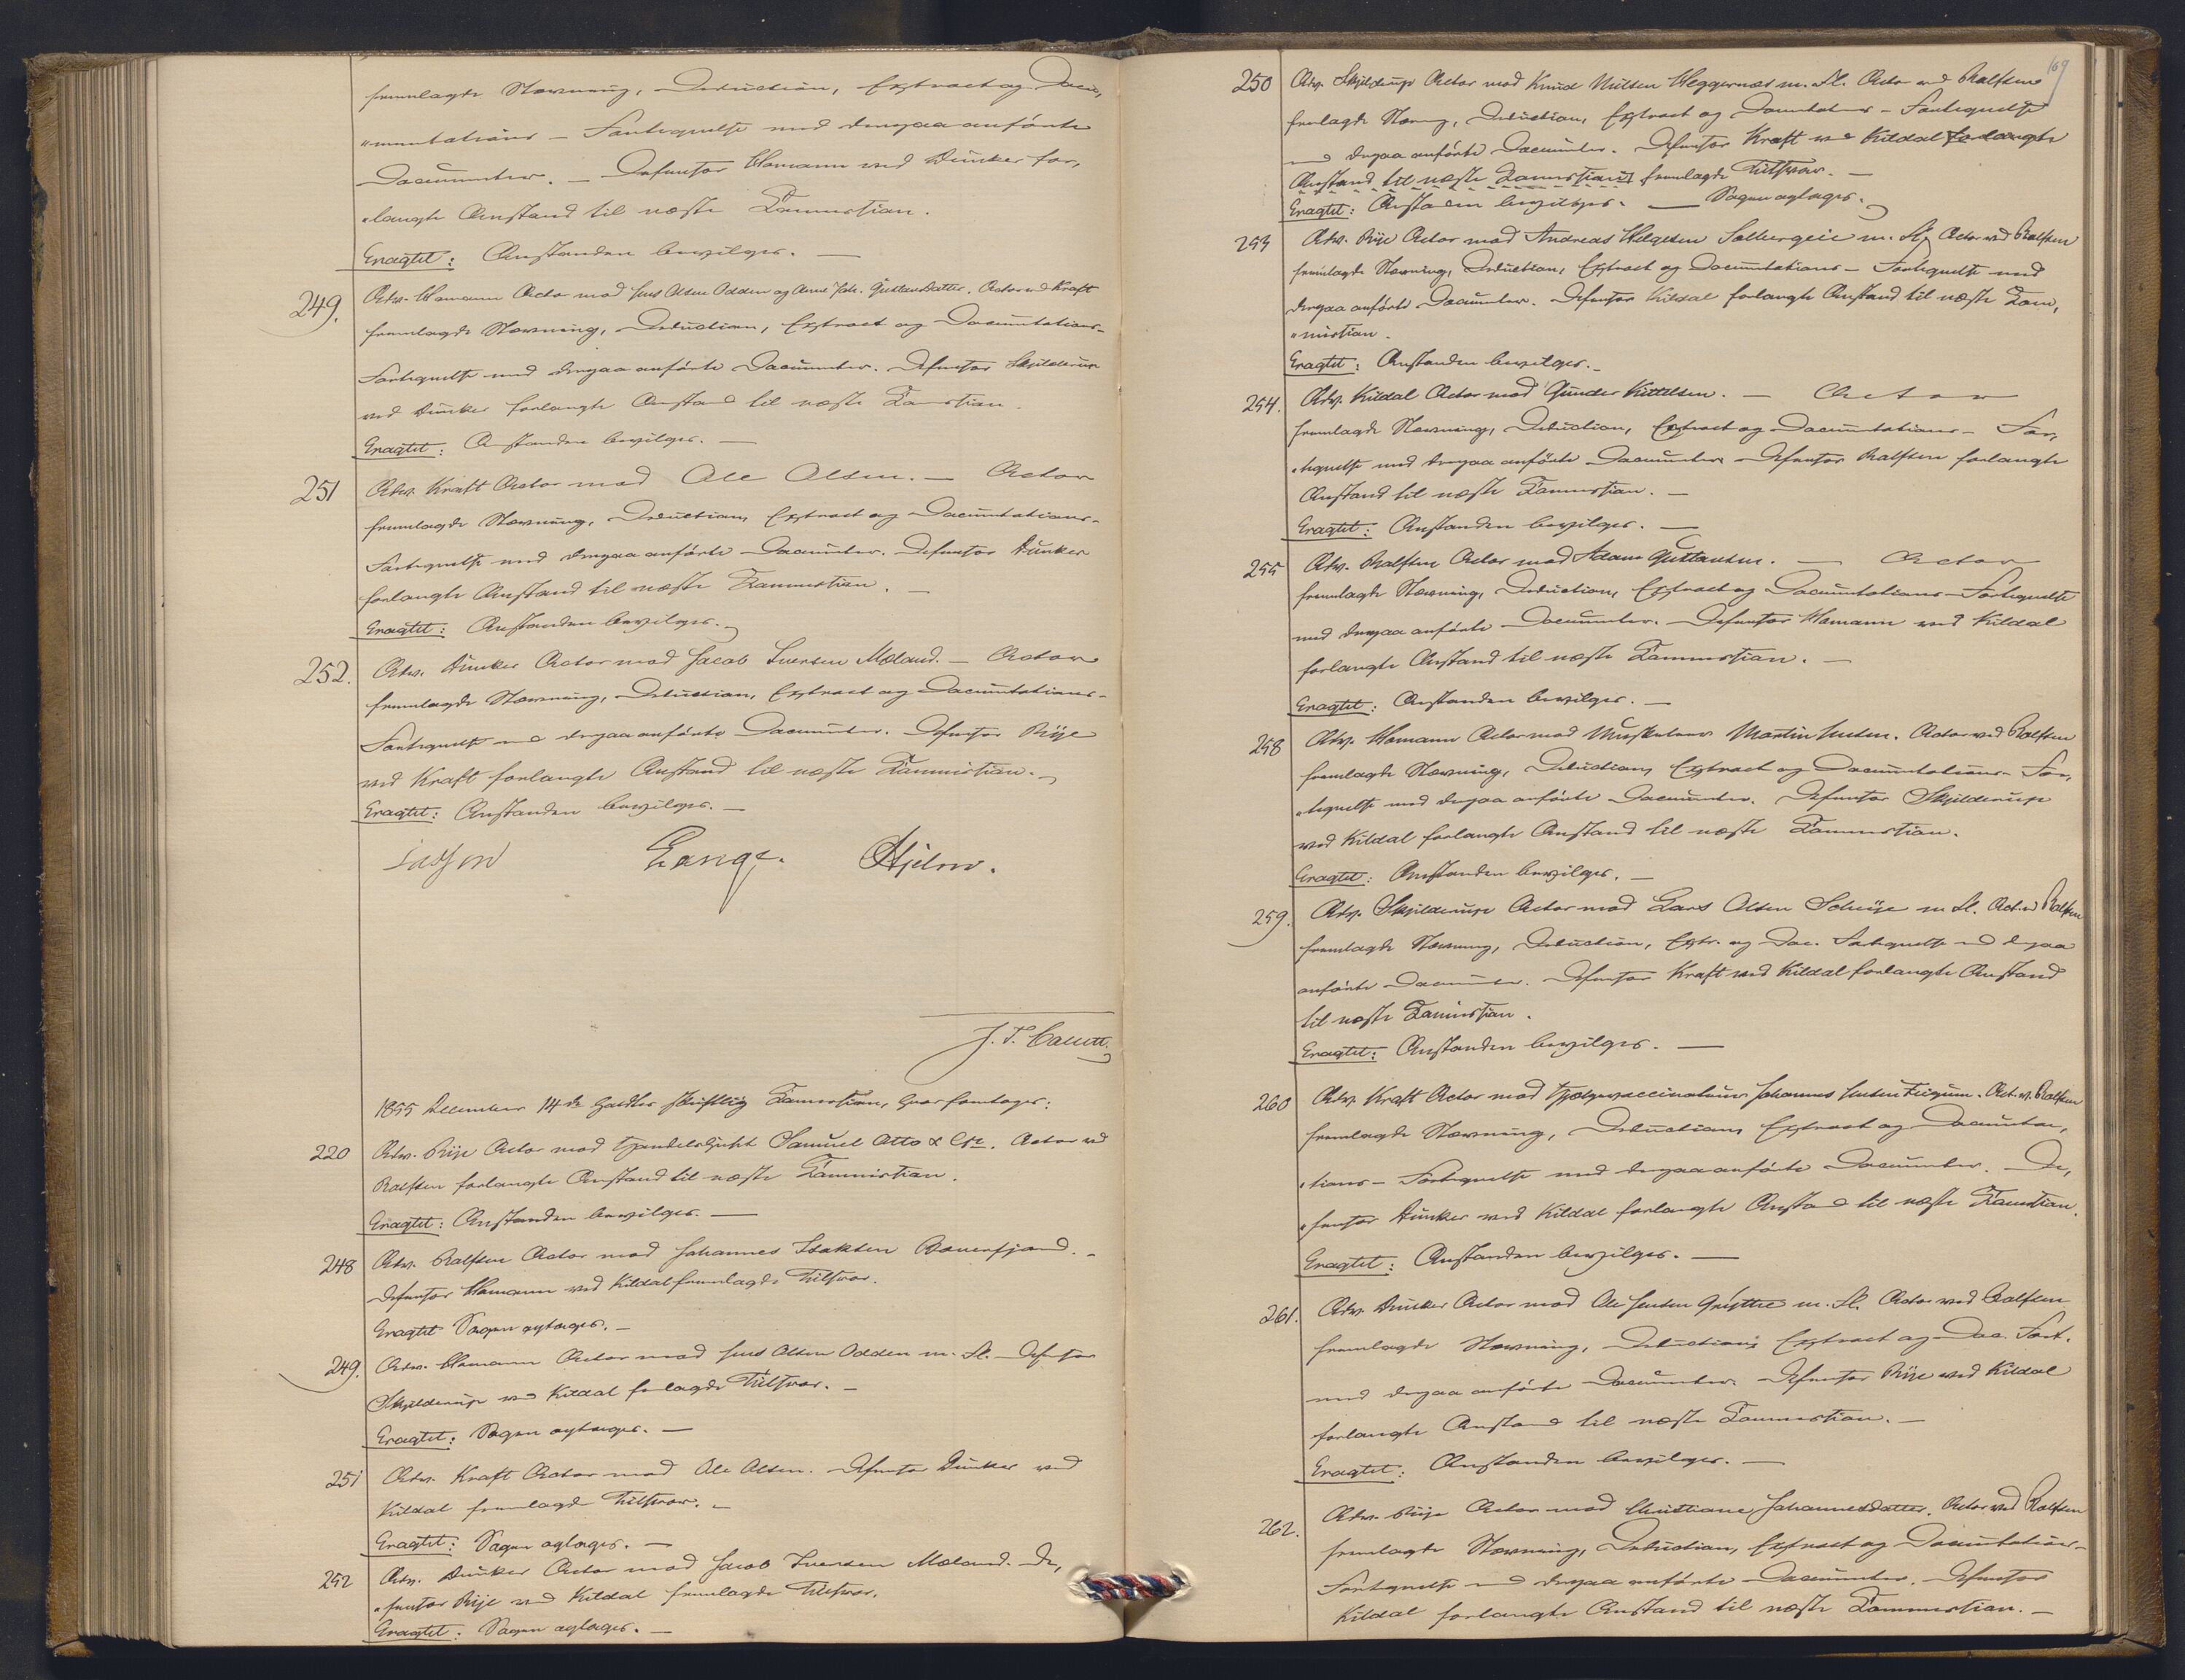 fremlagde Stævning, Deduction, Extract og Docu,
"mentations - Fortegnelse med derpaa anførte
Documenter. - Defensor Homann ved Dunker for,
"langte Anstand til næste Kammersion.
Eragtet: Anstanden bevilges. -
249. Adv. Homann Actor mod Jens Olsen Odden og Anne Joh. Gustavsdatter. Actor ved Kraft
fremlagde Stævning, Deduction, Extract og Documentations-
Fortegnelse med derpaa anførte Documenter. Defensor Skjelderup
ved Dunker forlangte Anstand til næste
Eragtet: Anstanden bevilges. -
251 Adv. Kraft Actor mod Ole Olsen. - Actor
fremlagde Stævning, Deduction, Extract og Documentations-
Fortegnelse med derpaa anførte Documenter. Defensor Dunker
forlangte Anstand til næste
Eragtet: Anstanden bevilges.
252. Adv. Dunker Actor mod Jacob Iversen Moland. - Actor
fremlagde Stævning, Deduction, Extract og Documentations-
Fortegnelse med derpaa anførte Documenter. Defensor Rije
ved Kraft forlangte Anstand til næste
Eragtet: Anstanden bevilges. -
Lasson Lange. Hjelm.
1855 December 14de holdtes skriftlig hvor foretages:
220 Adv. Rije Actor mod Handelshuset Samuel Otto & Co. Actor ved
Rolfsen forlangte Anstand til næste
Eragtet: Anstanden bevilges. -
248 Adv. Rolfsen Actor mod Johannes Isaksen
Defensor Homann ved Kildal fremlagde Tilsvar.
Eragtet Sagen optages. -
249. Adv. Homann Actor mod Jens Olsen Odden m. Fl. - Defensor
Skjelderup ved Kildal fremlagde Tilsvar. -
Eragtet: Sagen optages. -
251 Adv. Kraft Actor mod Ole Olsen. Defensor Dunker ved
Kildal fremlagde Tilsvar. -
Eragtet: Sagen optages. -
252 Adv. Dunker Actor mod Jacob Iversen Moland. De,
"fensor Rije ved Kildal fremlagde Tilsvar.
Eragtet: Sagen optages. -
169
250 Adv. Skjelderup Actor mod Knud Nilsen m. Fl. Actor ved Rolfsen
fremlagde Stævning, Deduction, Extract og Documentations - Fortegnelse
med derpaa anførte Documenter. Defensor Kraft ved Kildal forlangte
Anstand til næste fremlagde Tilsvar. -
Eragtet: Anstanden bevilges. - Sagen optages.
253 Adv. Rije Actor mod Andreas Helgesen m. Fl. Actor ved Rolfsen
fremlagde Stævning, Deduction, Extract og Documentations - Fortegnelse med
derpaa anførte Documenter. Defensor Kildal forlangte Anstand til næste
Eragtet: Anstanden bevilges. -
254. Adv. Kildal Actor mod Gunder Kittelsen. - Actor
fremlagde Stævning, Deduction, Extract og Documentations - For,
"tegnelse med derpaa anførte Documenter Defensor Rolfsen forlangte
Anstand til næste
Eragtet: Anstanden bevilges. -
255 Adv. Rolfsen Actor mod Adam Gulliksen. - Actor
fremlagde Stævning, Deduction, Extract og Documentations - Fortegnelse
med derpaa anførte Documenter. Defensor Homann ved Kildal
forlangte Anstand til næste
Eragtet: Anstanden bevilges. -
258 Adv. Homann Actor mod Musketeer Martin Jensen. Actor ved Rolfsen
fremlagde Stævning, Deduction, Extract og Documentations - For,
"tegnelse med derpaa anførte Documenter. Defensor Skjelderup
ved Kildal forlangte Anstand til næste
Eragtet: Anstanden bevilges. -
259. Adv. Skjelderup Actor mod Lars Olsen m. Fl. Act. ved Rolfsen
fremlagde Stævning, Deduction, Extr. og Doc. Fortegnelse med derpaa
anførte Documenter. Defensor Kraft ved Kildal forlangte Anstand
til næste
Eragtet: Anstanden bevilges. -
260 Adv. Kraft Actor mod Hjælpevaccinateur Johannes Jensen Act. v. Rolfsen
fremlagde Stævning, Deduction, Extract og Documenta,
"tions - Fortegnelse med derpaa anførte Documenter. De,
"fensor Dunker ved Kildal forlangte Anstand til næste
Eragtet: Anstanden bevilges. -
261. Adv. Dunker Actor mod Ole Jensen m. Fl. Actor ved Rolfsen
fremlagde Stævning, Deduction, Extract og Doc. Fort.
med derpaa anførte Documenter. Defensor Rije ved Kildal
forlangte Anstand til næste
Eragtet: Anstanden bevilges. -
262. Adv. Rije Actor mod Christiane Johannesdatter. Actor ved Rolfsen
fremlagde Stævning, Deduction, Extract og Documentations-
Fortegnelse med derpaa anførte Documenter. Defensor
Kildal forlangte Anstand til næste